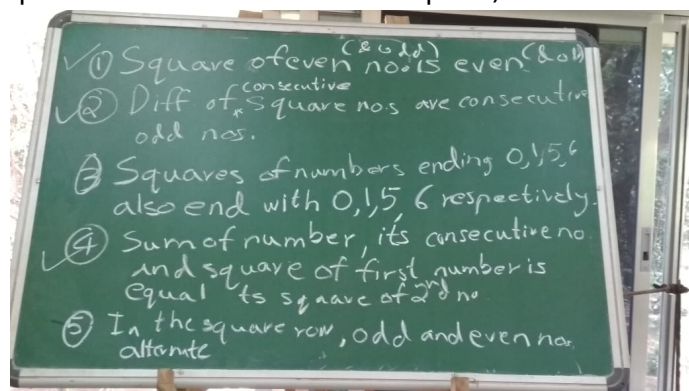 ① Square of even (& odd) no. is even (& odd)
② Diff of consecutive square nos are consecutive
odd nos.
③ Squares of numbers ending 0,1,5,6
also end with 0,1,5, 6 respectively.
④ Sum of number, its consecutive no.
and square of first number is
equal to square of 2nd no
⑤ In the square row, odd and even no.
alternate